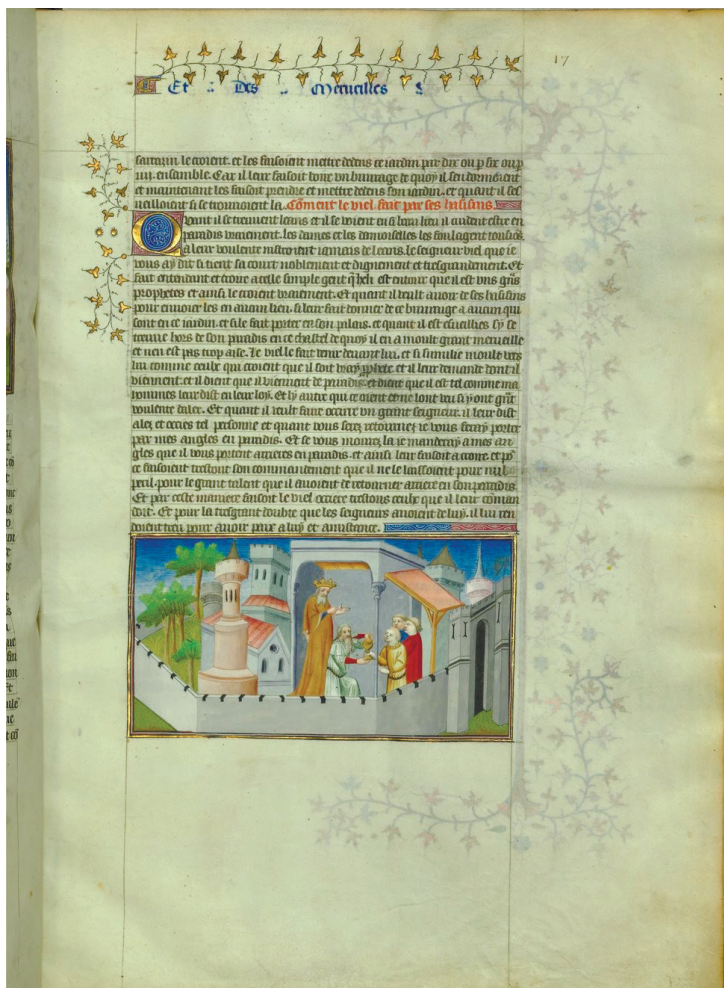 17
Et .. Des .. Merueilles
sarrazin le croient. et les faisoient mettre dedens ce iardin par dix ou p six ou p
iiii. ensamble. Car il leur faisoit boire vn buurage de quoy il sen dormoient
et maintenant les faisoit prendre et mettre dedens son iardin. et quant il ses
ueilloient si se trouuoient la. Cõment le viel fait par ses hasisins.
Quant il se treuuent leans et il se voient en si beau lieu il cuident estre en
paradis vraiement. les dames et damoiselles les soulagent tousiours
a leur voulente nistroient iamais de leans. le seigneur viel que ie
vous ay dit si tient sa court noblement et dignement et tresgrandement. Et
fait entendant et croire a celle simple gent q̃ li est entour que il est vns grñs
prophetes et ainsi le croient vraiement. Et quant il veult auoir de ses hasisins
pour enuoier les en aucun lieu. si leur fait donner de ce buurage a aucun qui
sont en ce iardin. et si le fait porter en son palais. et quant il est esueillies sy se
treuue hors de son paradis en ce chastel de quoy il en a moult grant merueille
et nen est pas trop aise. Le viel le fait venir deuant lui. et si sumilie moult vers
lui comme ceulx qui croient que il soit vray pphete. et il leur demande dont il
viennent. et il dient que il viennent de paradis. et dient que il est tel comme ma
hommes leur dist en leur loy. Et ly autre qui ce oient et ne lont veu si y ont grãt
voulente daler. Et quant il veult faire occirre vn grant seigneur. il leur dist
ales et occies tel personne et quant vous serez retournez ie vous feray porter
par mes angles en paradis. Et se vous mourez la ie manderay a mes an
gles que il vous portent arrieres en paradis. et ainsi leur faisoit a croire. et po
ce faisoient trestout son commandement que il ne le laissoient pour nul
peril. pour le grant talent que il auoient de retourner arriere en son paradis.
Et par ceste maniere faisoit le viel occirre trestous ceulx que il leur cõman
doit. Et pour la tresgrant doubte que les seigneurs auoient de luy. il lui ren
doient treu pour auoir paix a luy et amistance.